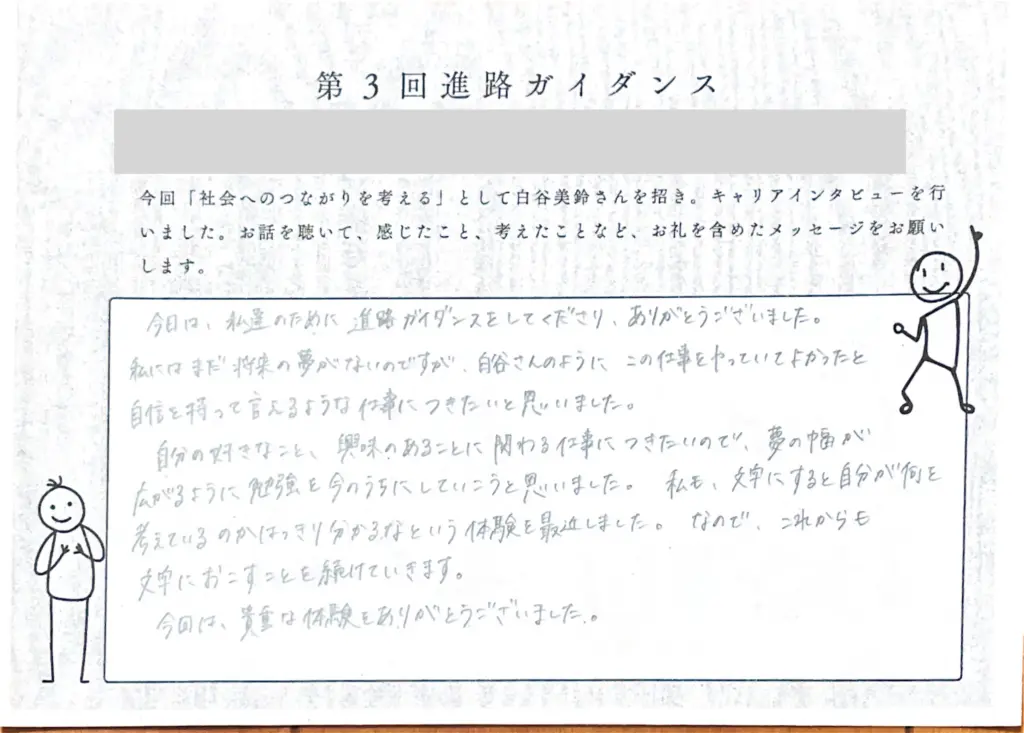 第3回進路ガイダンス
今回「社会へのつながりを考える」として白谷美鈴さんを招き。キャリアインタビューを行
いました。お話を聴いて、感じたこと、考えたことなど、お礼を含めたメッセージをお願い
します。
今日は、私達のために進路ガイダンスをしてくださり、ありがとうございました。
私にはまだ将来の夢がないのですが、白谷さんのように この仕事をやっていてよかったと
自信を持って言えるような仕事につきたいと思いました。
自分の好きなこと、興味のあることに関わる仕事につきたいので、夢の幅が
広がるように勉強を今のうちにしていこうと思いました。 私も、文字にすると自分が何を
考えているのかはっきり分かるなという体験を最近しました。 なので、これからも
文字におこすことを続けていきます。
今回は、貴重な体験をありがとうございました。